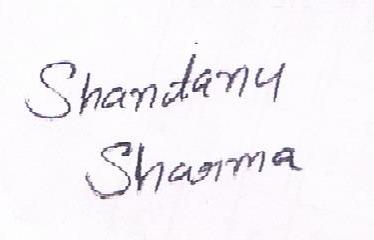 Shandanu
Sharma